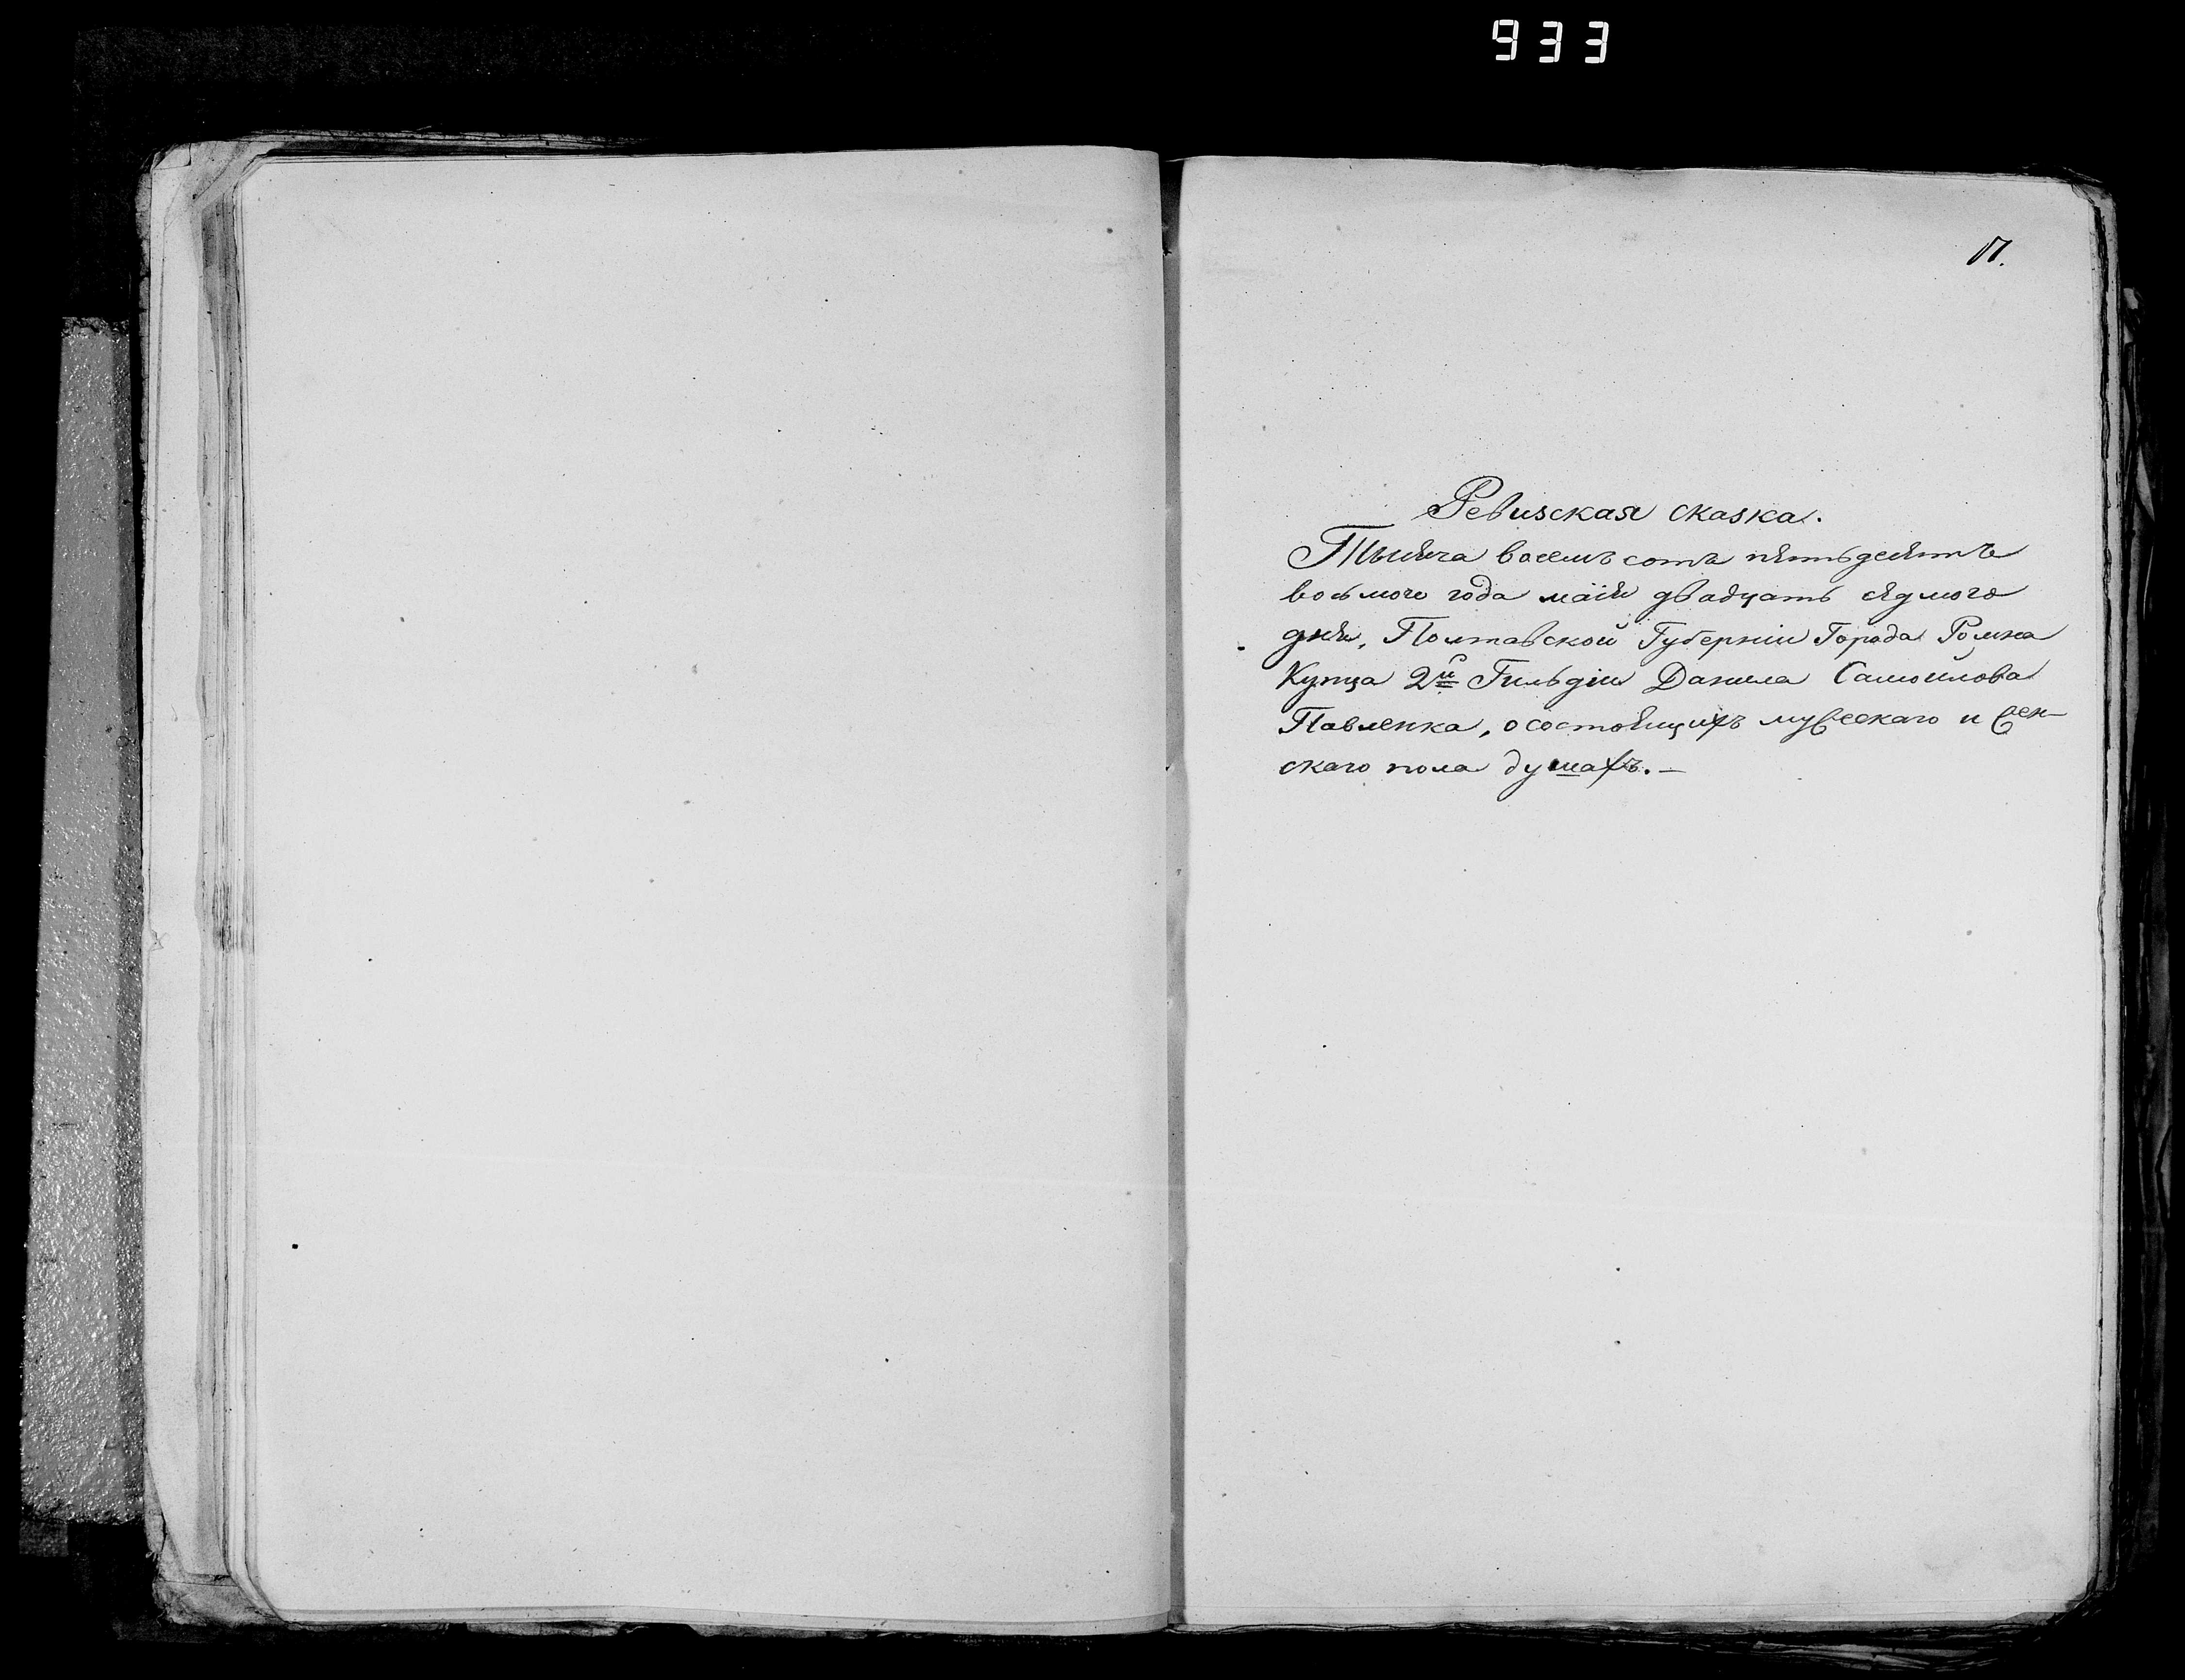 933
17.
Ревизская сказка.
Тысяча восемь сотъ пятьдесятъ
восьмого года маія двадцать седмого
дня, Полтавской Губерніи Города Ромна
Купца 2й Гильдіи Данила Самойлова
Павленка, о состоящихъ мужескаго и жен-
скаго пола душахъ. —